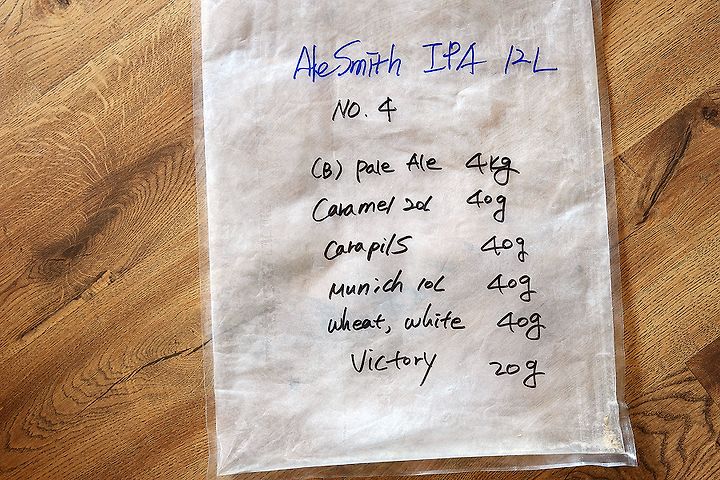 AleSmith IPA 12L
NO. 4
(B) Pale Ale 4kg
Caramel 20L 40g
Carapils 40g
Munich 10L 40g
Wheat, white 40g
Victory 20g